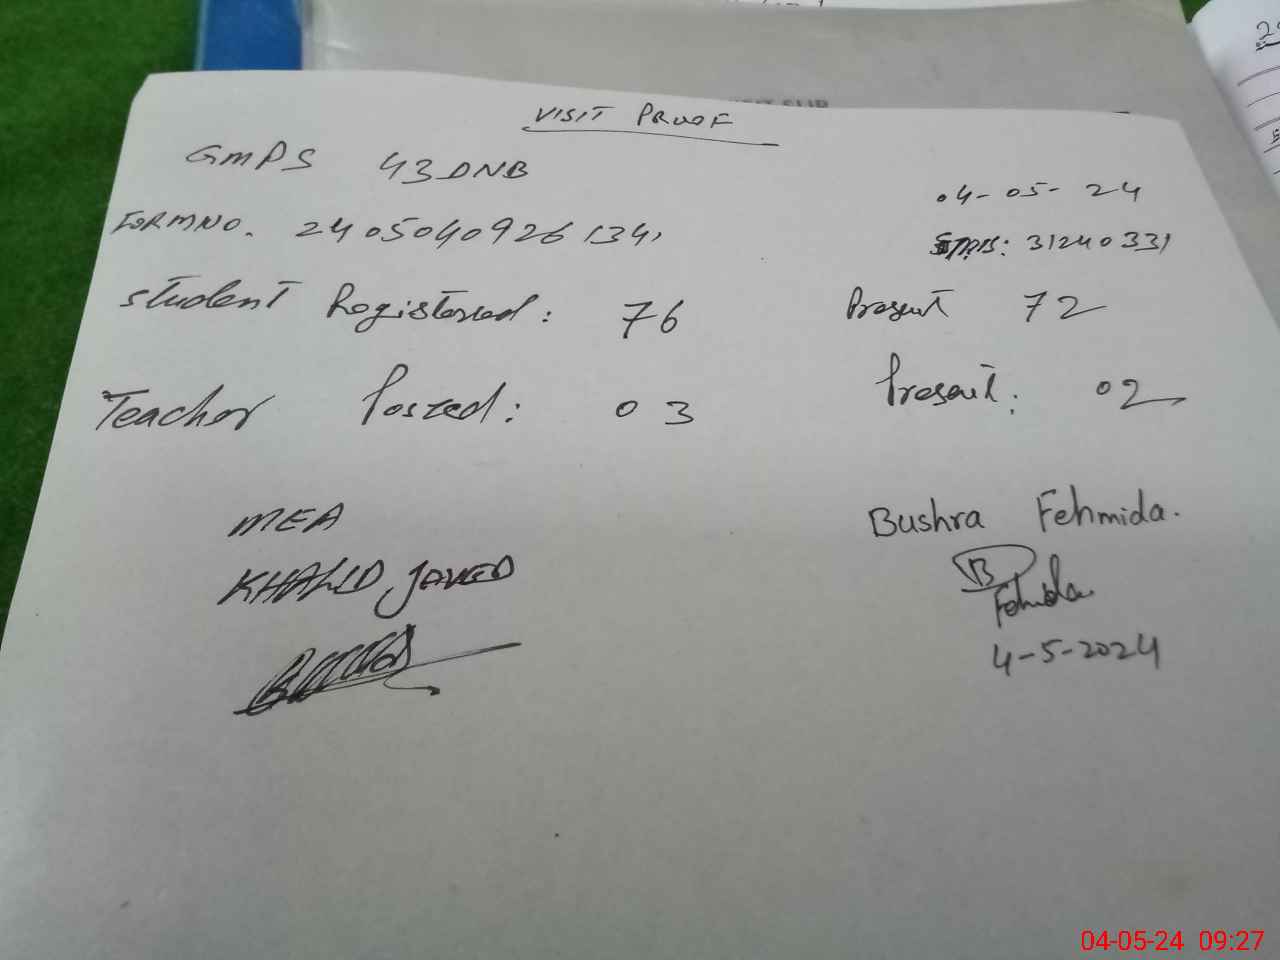 VISIT PROOF
GMPS 43DNB
04-05-24
FORM NO. 24050409261341
EMIS: 31240331
Student Registered: 76 Present 72
Teacher Posted: 03 Present: 02
MEA
KHALID JAVED
Bushra Fehmida.
B
Fehmida
4-5-2024
04-05-24 09:27